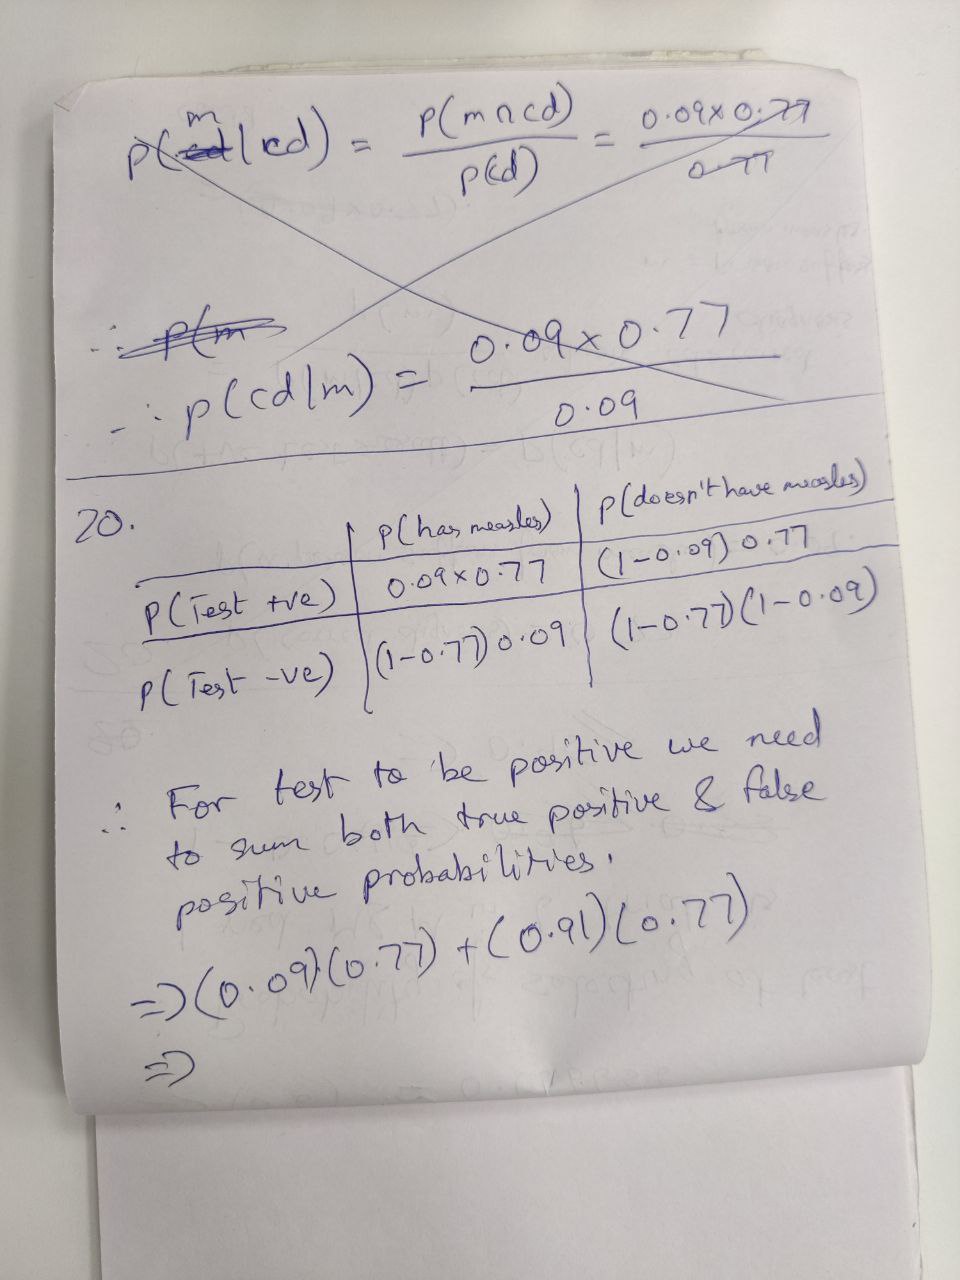 P(m|cd) = P(m∩cd)/P(cd) = 0.09×0.77/0.77
∴ P(m
∴ P(cd|m) = 0.09×0.77/0.09
20.
P(has measles) P(doesn't have measles)
P(Test +ve) 0.09×0.77 (1-0.09) 0.77
P(Test -ve) (1-0.77) 0.09 (1-0.77)(1-0.09)
∴ For test to be positive we need
to sum both true positive & false
positive probabilities.
=> (0.09)(0.77) + (0.91)(0.77)
=>